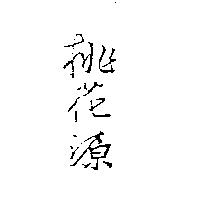 桃花源